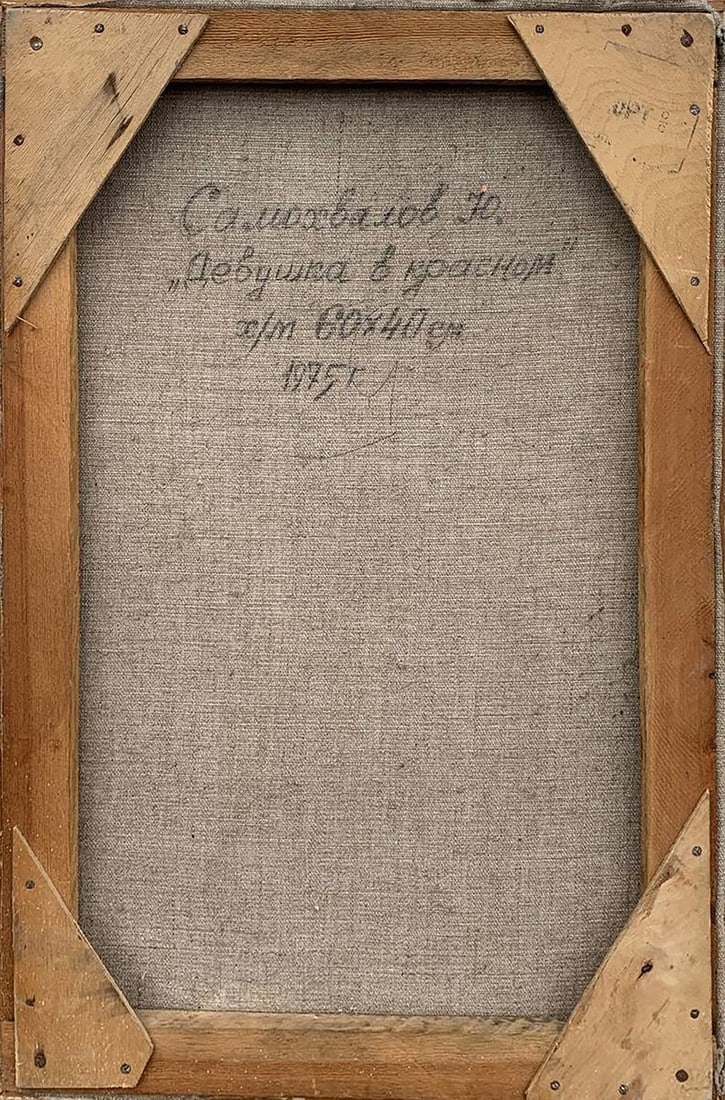 Самохвалов Ю.
„Девушка в красном"
х/м 60х40см
1975г